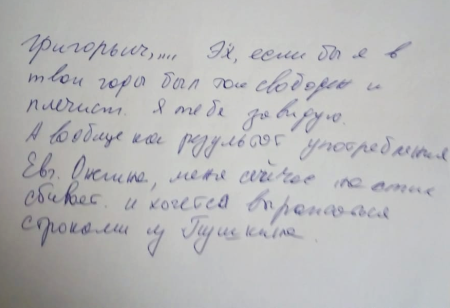 Григорьич,.... Эх, если бы я в
твои годы был так свободен и
плечист. Я тебе завидую.
А вообще как результат употребления
Евг. Онегина, меня сейчас на стих
сбивает. и хочется выражаться
строками из Пушкина.